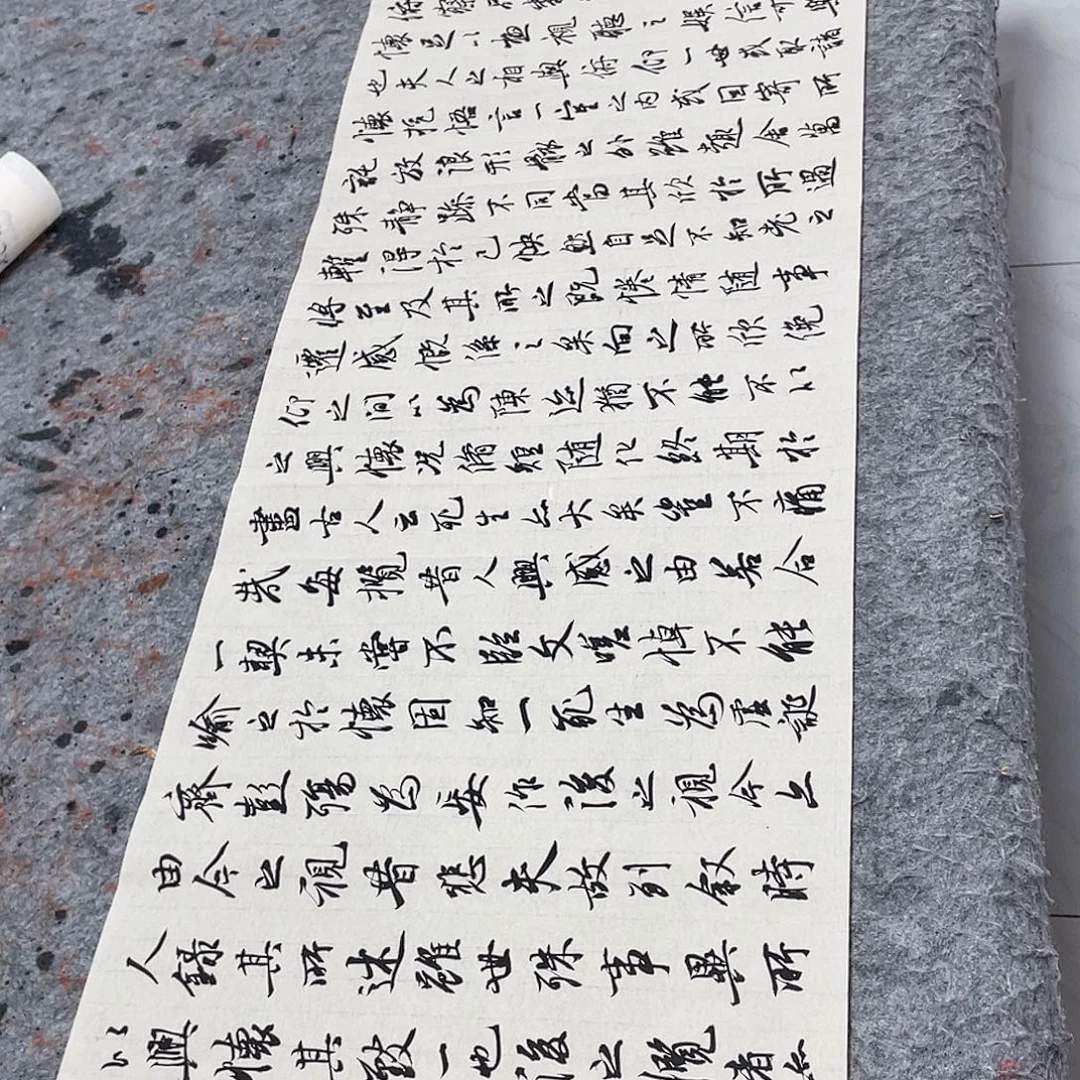 懷足以極視聽之娛信可
也夫人之相與俯仰一世或取諸
懷抱悟言一室之内或因寄所
託放浪形骸之外雖趣舍萬
殊靜躁不同當其欣於所遇
暫得於己怏然自足不知老之
將至及其所之既惓情隨事
遷感慨係之矣向之所欣俛
仰之間以為陳迹猶不能不以
之興懷况脩短隨化終期於
盡古人云死生亦大矣豈不痛
哉每攬昔人興感之由若合
一契未嘗不臨文嗟悼不能
喻之於懷固知一死生為虛誕
齊彭殤為妄作後之視今亦
由今之視昔悲夫故列叙時
人錄其所述雖世殊事異所
以興懷其致一也後之攬者亦